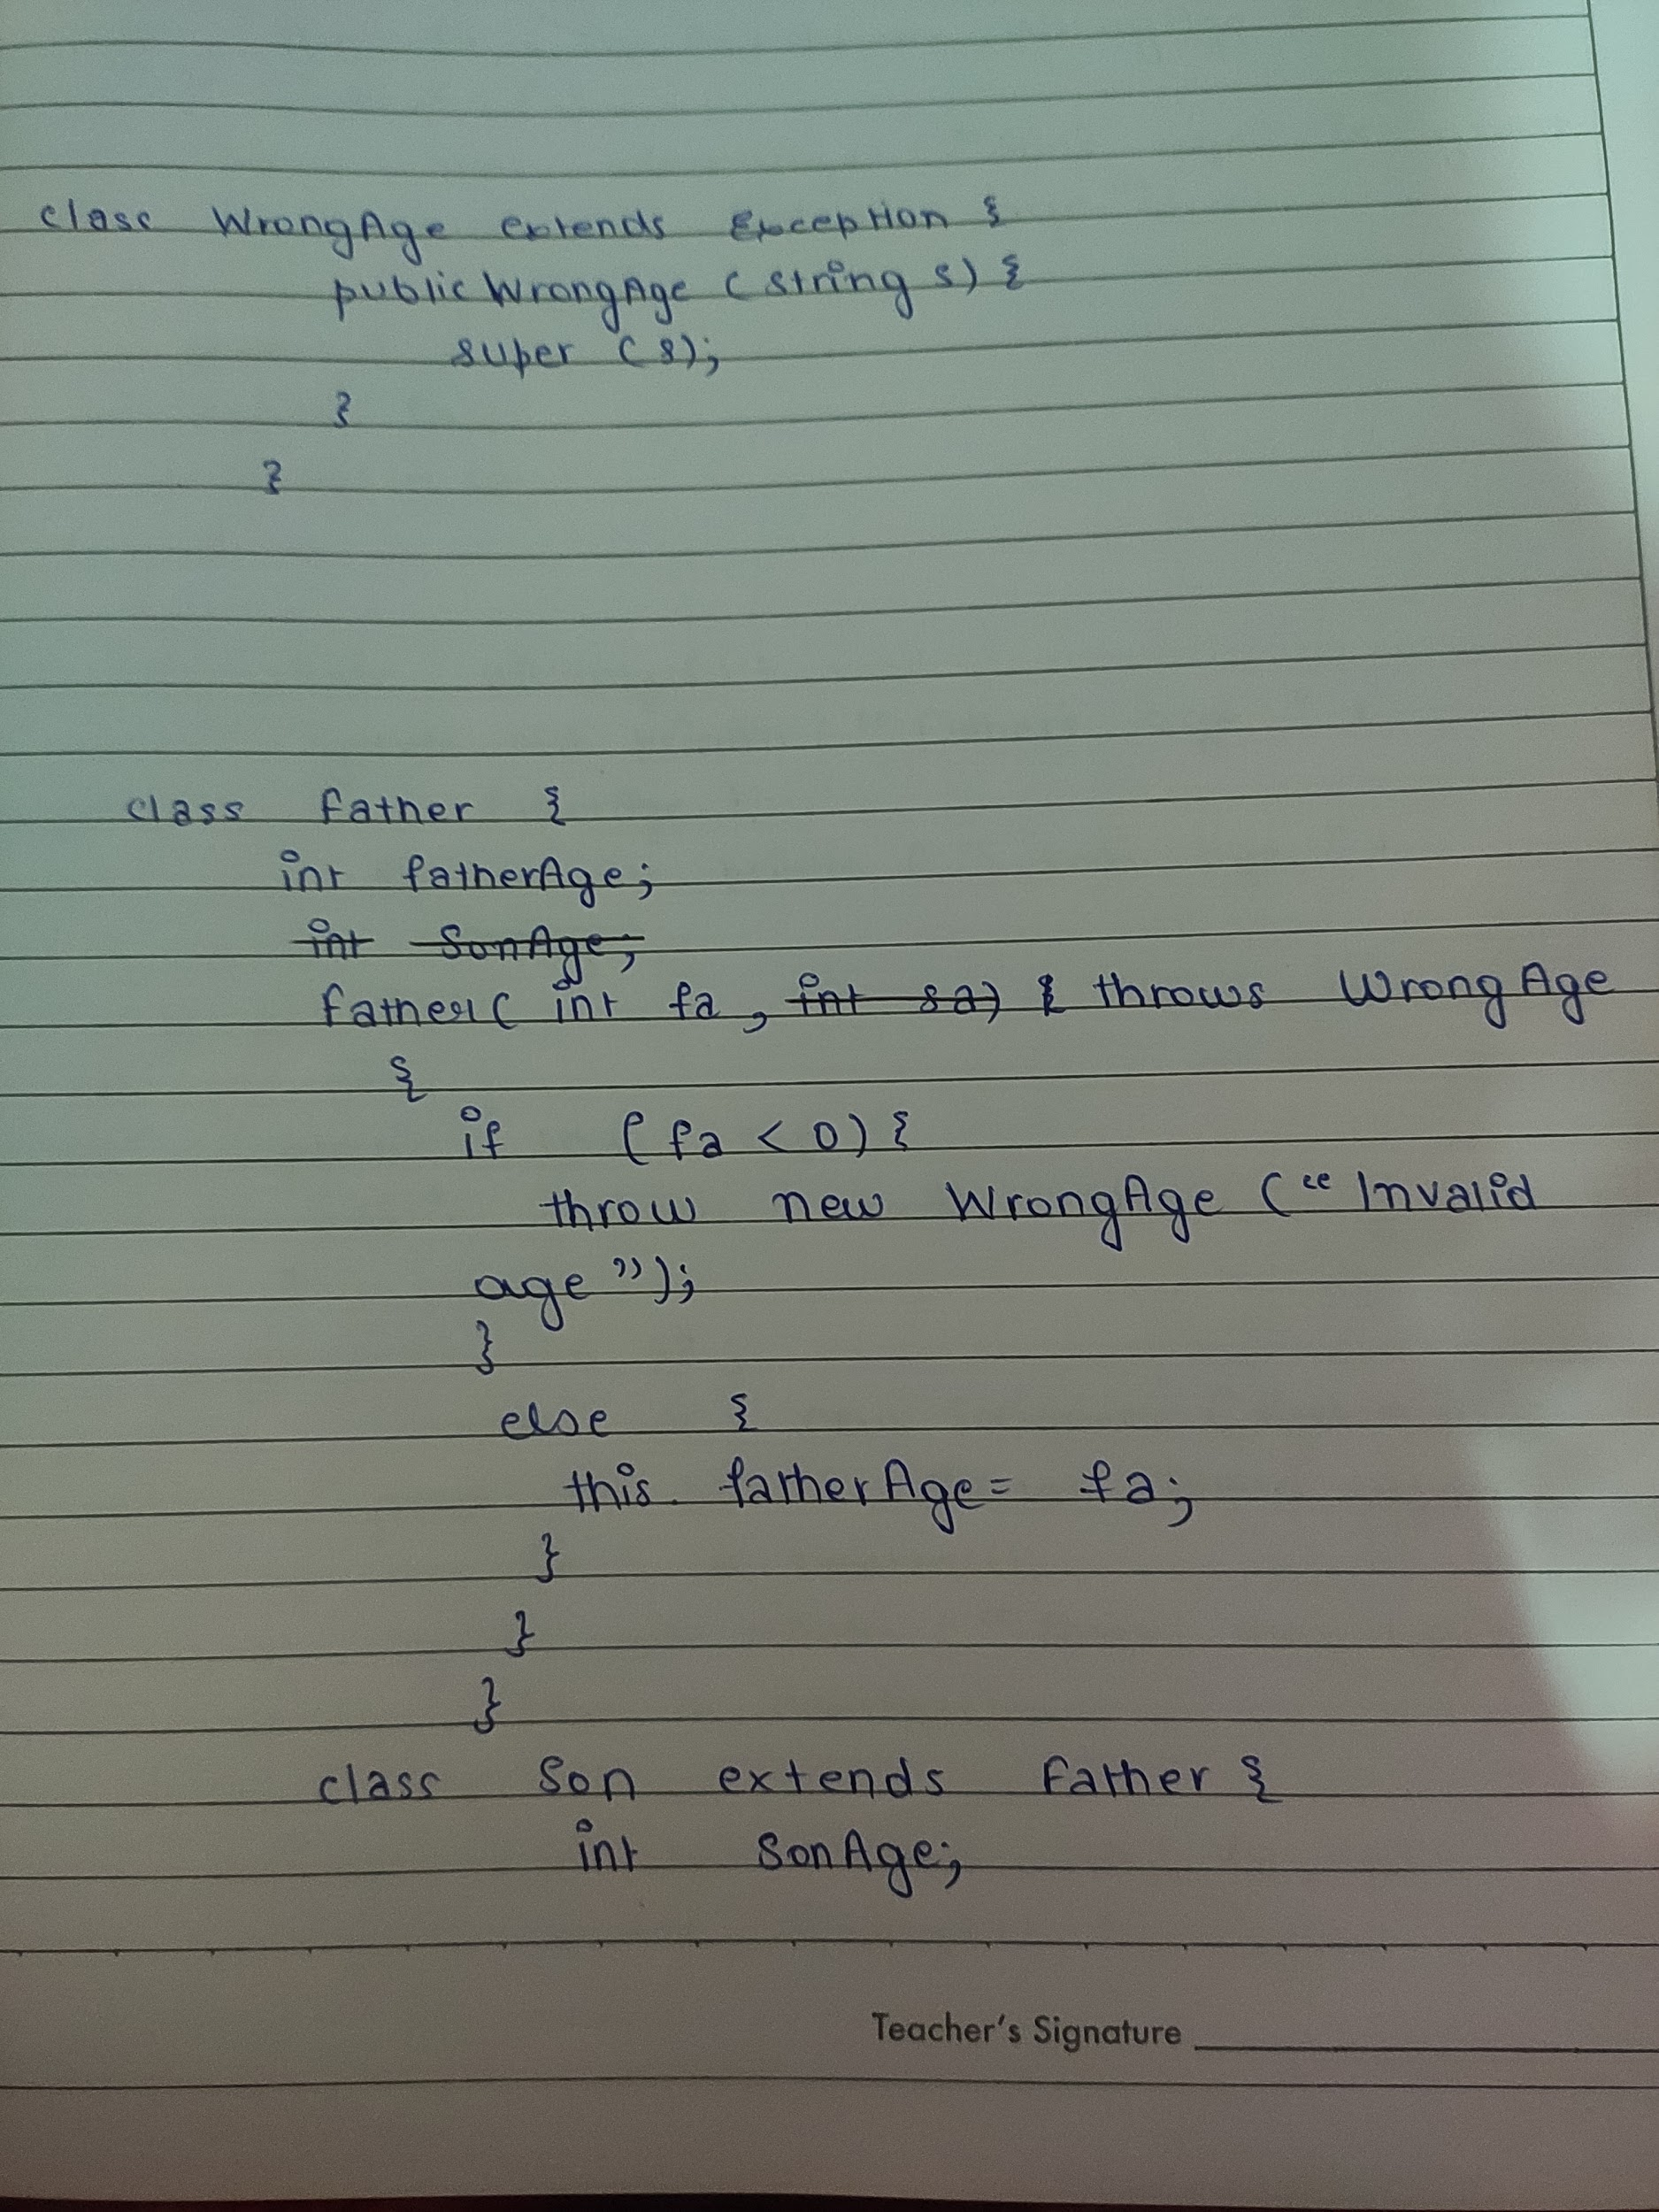 class WrongAge extends Exception {
public WrongAge (string s) {
super (s);
}
}
class Father {
int fatherAge;
int SonAge;
Father( int fa, int sa) { throws WrongAge
{
if (fa < 0) {
throw new WrongAge (“Invalid
age”);
}
else {
this. fatherAge = fa;
}
}
}
class Son extends Father {
int SonAge;
Teacher's Signature